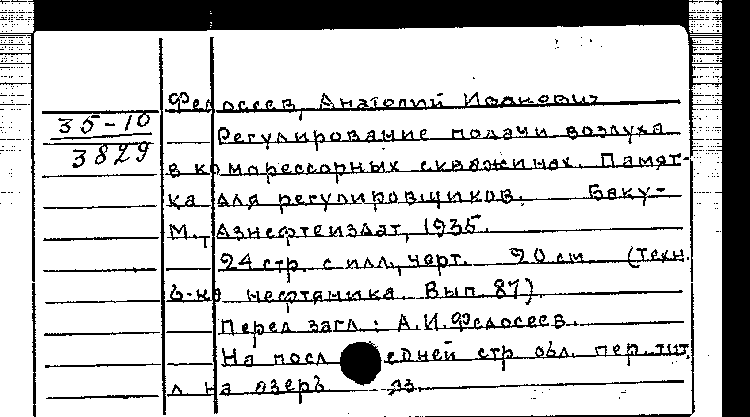 Федосеев, Анатолий Иванович
35-10
3829
Регулирование подачи воздуха
в компрессорных скважинах. Памят-
ка для регулировщиков. Баку-
М., Азнефтеиздат, 1935.
24 стр. с илл., черт. 20 см. (Техн.
б-ка нефтяника. Вып. 87).
Перед загл.: А.И.Федосеев.
На последней стр. обл. пер. тит.
л. на азерб. яз.